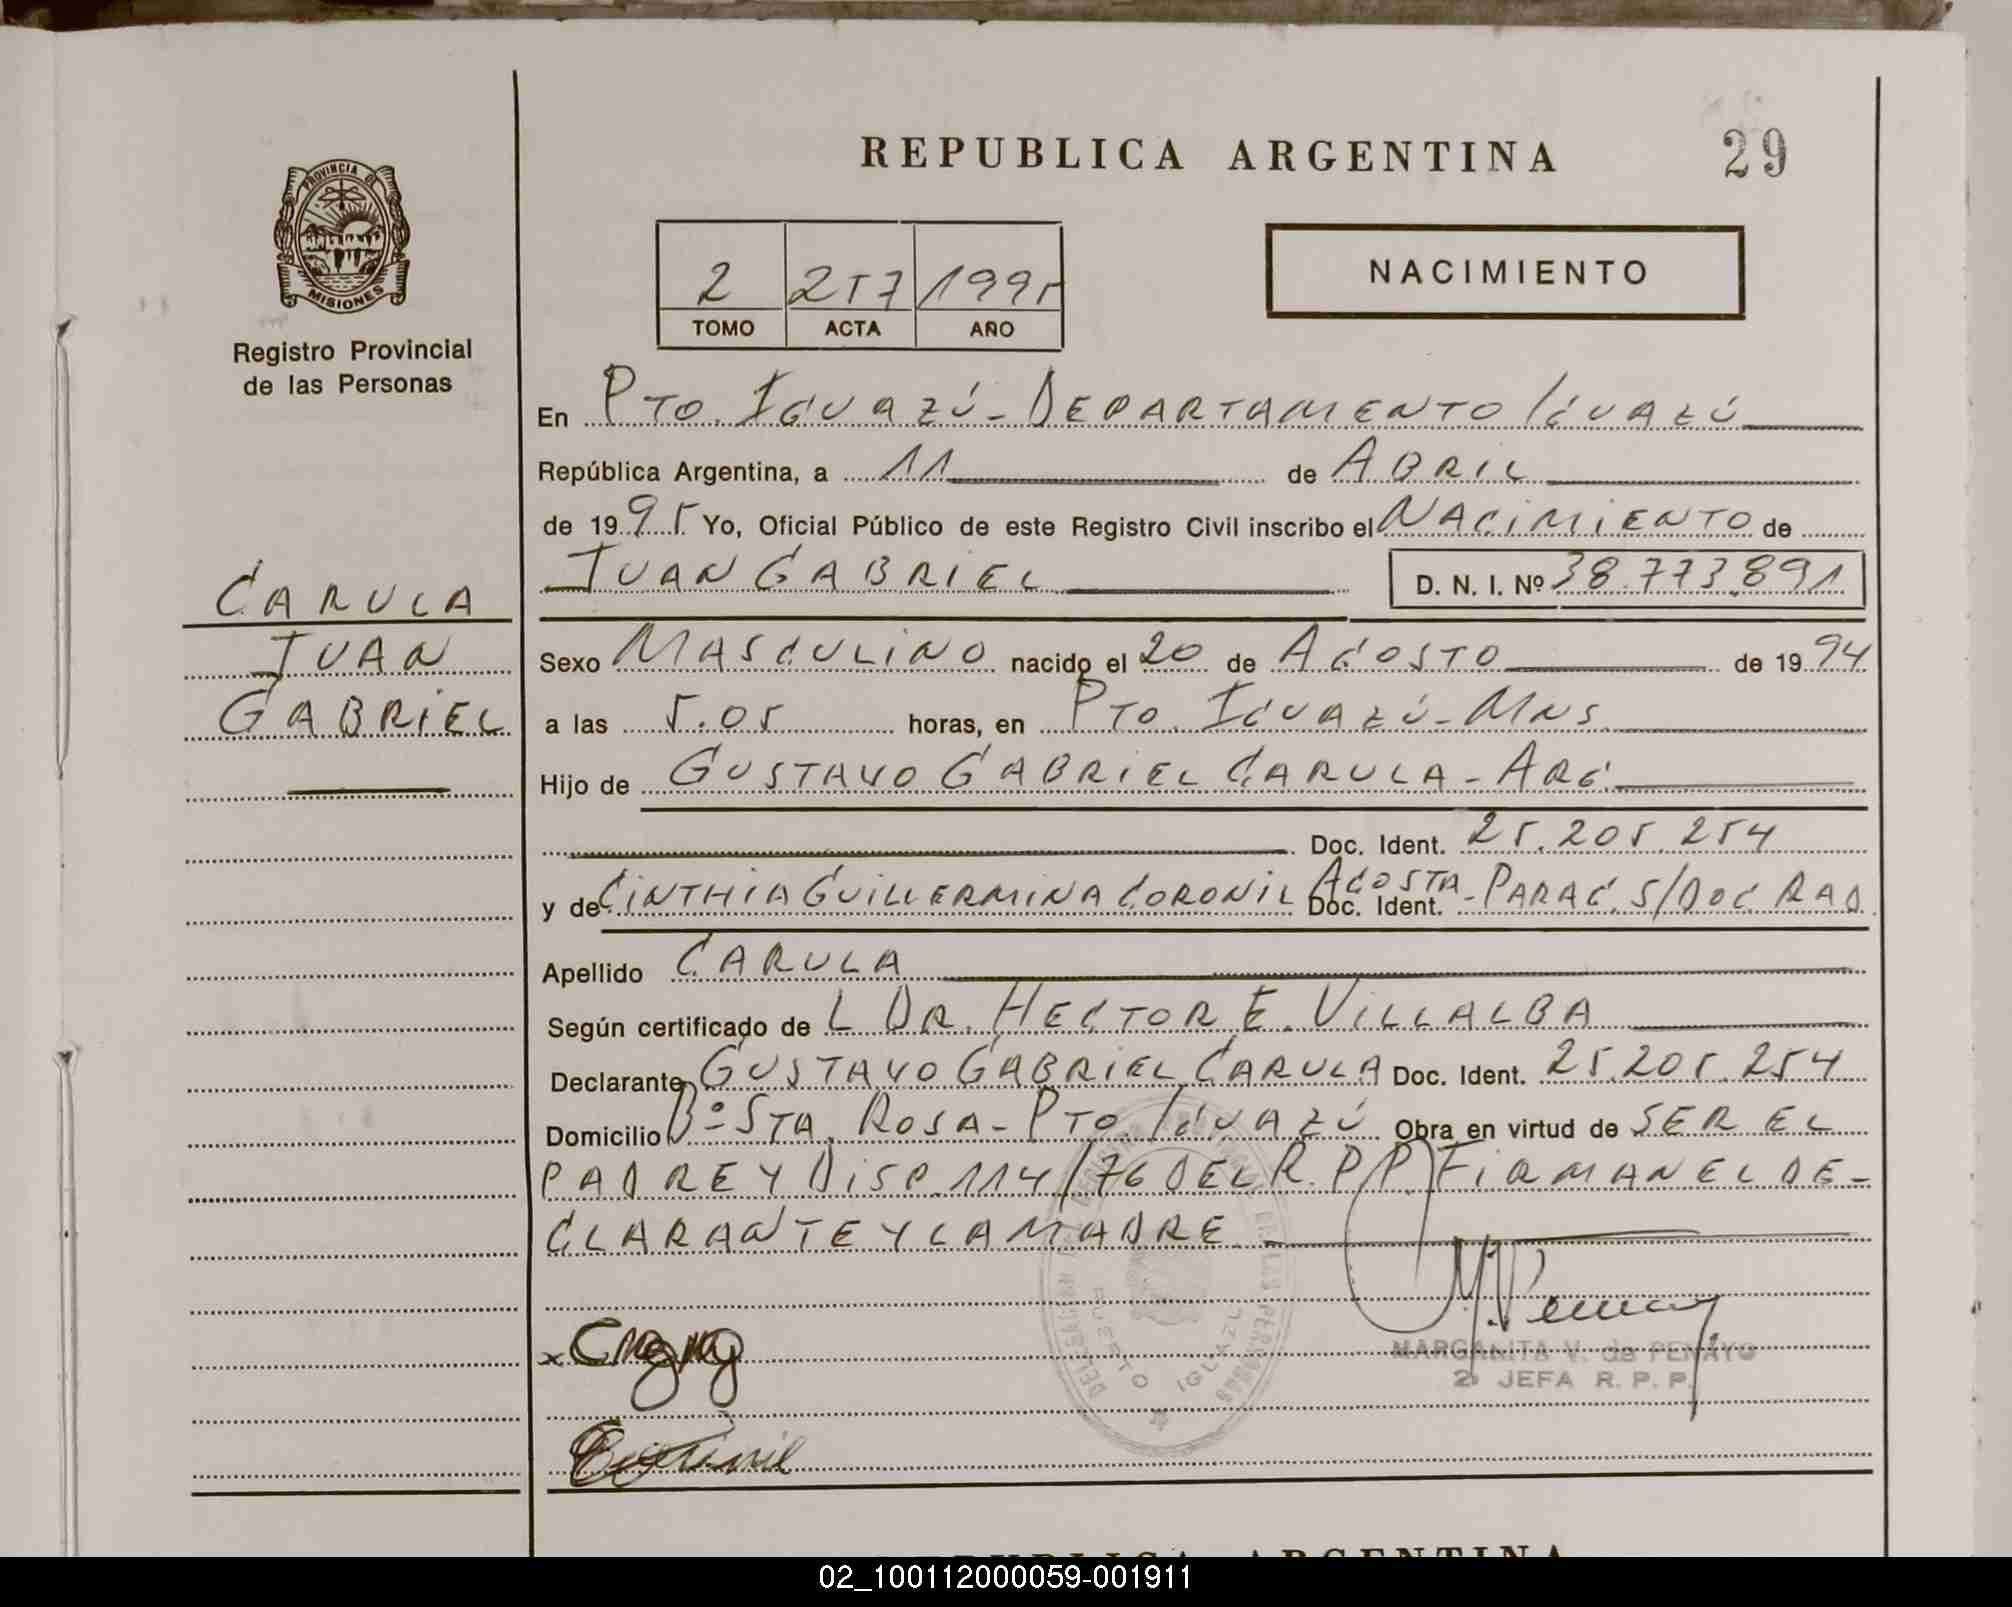 REPUBLICA ARGENTINA 29
PROVINCIA DE
MISIONES
Registro Provincial
de las Personas
2 257 1995
TOMO ACTA AÑO
NACIMIENTO
En PTO. IGUAZÚ - DEPARTAMENTO IGUAZÚ
República Argentina, a 11 de ABRIL
de 1995 Yo, Oficial Público de este Registro Civil inscribo el NACIMIENTO de
JUAN GABRIEL D. N. I. Nº 38.773.891
CARULA
JUAN
GABRIEL
Sexo MASCULINO nacido el 20 de AGOSTO de 1994
a las 5.05 horas, en PTO. IGUAZÚ - MNS.
Hijo de GUSTAVO GABRIEL CARULA - ARG.
Doc. Ident. 25.205.254
y de CINTHIA GUILLERMINA CORONIL ACOSTA - PARAG. S/DOC RAD
Doc. Ident.
Apellido CARULA
Según certificado de L DR. HECTOR E. VILLALBA
Declarante GUSTAVO GABRIEL CARULA Doc. Ident. 25.205.254
Domicilio Bº STA. ROSA - PTO IGUAZÚ Obra en virtud de SER EL
PADRE Y DISP. 114/76 DEL R.P.P. FIRMAN EL DE-
CLARANTE Y LA MADRE
x
MARGARITA V. de PENAYO
2ª JEFA R. P. P.
PUERTO IGUAZU
REPUBLICA ARGENTINA
02_100112000059-001911